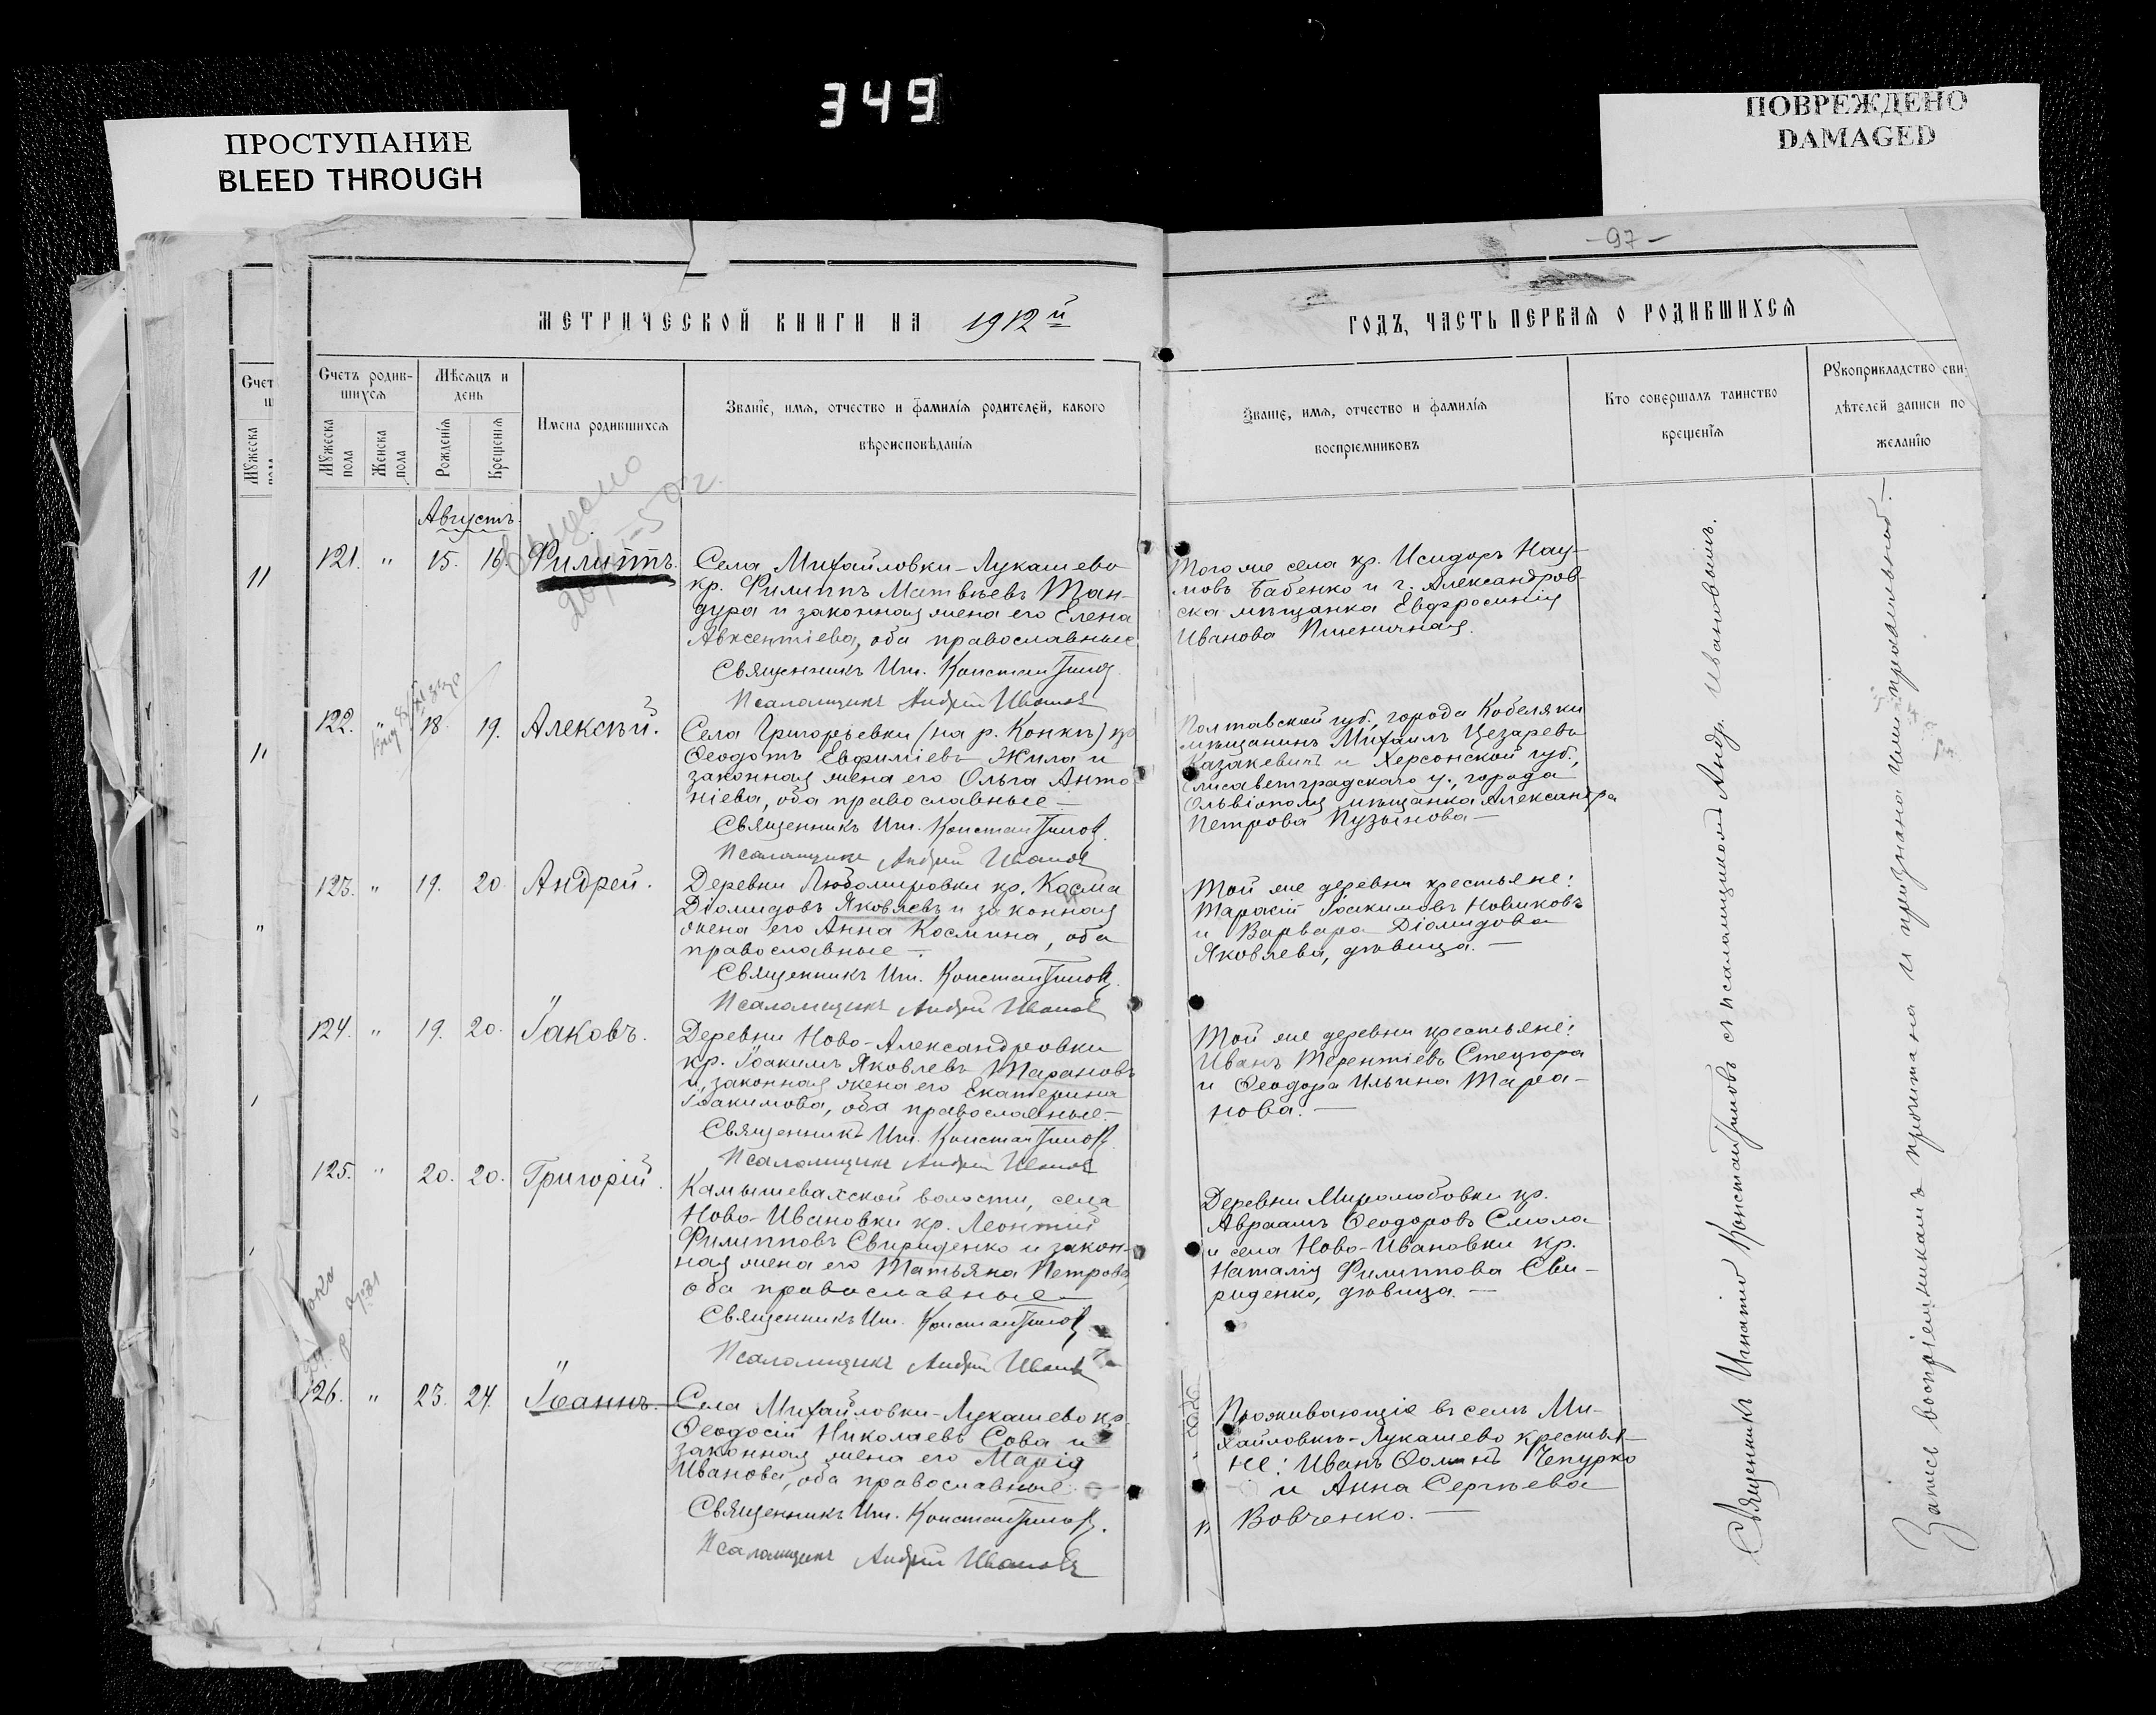 349
ПРОСТУПАНИЕ
BLEED THROUGH
ПОВРЕЖДЕНО
DAMAGED
-97-
МЕТРИЧЕСКОЙ КНИГИ НА 1912й
ГОДЪ, ЧАСТЬ ПЕРВАЯ О РОДИВШИХСЯ
Счетъ родив-
шихся
Мужеска пола
Женска пола
Мѣсяцъ и
день
Рожденія
Крещенія
Имена родившихся
Званіе, имя, отчество и фамилія родителей, какого
вѣроисповѣданія
Званіе, имя, отчество и фамилія
воспріемниковъ
Кто совершалъ таинство
крещенія
Рукоприкладство сви-
дѣтелей записи по
желанію
Августъ.
121. " 15. 16. Филиппъ.
Села Михайловки-Лукашево
кр. Филиппъ Матвѣевъ Тан-
дура и законная жена его Елена
Авксентіева, оба православные
Священникъ Игн. Константиновъ
Псаломщикъ Андрей Ивановъ
Того же села кр. Исидоръ Нау-
мовъ Бабенко и г. Александров-
ска мѣщанка Евфросинія
Иванова Пшеничная.
122. " 18. 19. Алексѣй.
Села Григорьевки (на р. Конкѣ) кр.
Ѳеодотъ Евфиміевъ Жила и
законная жена его Ольга Анто
ніева, оба православные —
Священникъ Игн. Константиновъ.
Псаломщикъ Андрей Ивановъ
Полтавской губ., города Кобеляки
мѣщанинъ Михаилъ Цезаревъ
Казакевичъ и Херсонской губ.,
Елисаветградскаго у., города
Ольвіополя мѣщанка Александра
Петрова Пузынова —
123. " 19. 20. Андрей.
Деревни Любомировки кр. Косма
Діомидовъ Яковлевъ и законная
жена его Анна Космина, оба
православные —
Священникъ Игн. Константиновъ.
Псаломщикъ Андрей Ивановъ
Той же деревни крестьяне:
Тарасій Іоакимовъ Новиковъ
и Варвара Діомидова
Яковлева, дѣвица. —
124. " 19. 20. Іаковъ.
Деревни Ново-Александровки
кр. Іоакимъ Яковлевъ Тарановъ
и законная жена его Екатерина
Іоакимова, оба православные —
Священникъ Игн. Константиновъ
Псаломщикъ Андрей Ивановъ
Той же деревни крестьяне:
Иванъ Терентіевъ Стецюра
и Ѳеодора Ильина Тара-
нова. —
125. " 20. 20. Григорій.
Камышевахской волости, села
Ново-Ивановки кр. Леонтій
Филипповъ Свириденко и закон-
ная жена его Татьяна Петрова,
оба православные —
Священникъ Игн. Константиновъ
Псаломщикъ Андрей Ивановъ
Деревни Миролюбовки кр.
Авраамъ Ѳеодоровъ Смола
и села Ново-Ивановки кр.
Наталія Филиппова Сви-
риденко, дѣвица. —
126. " 23. 24. Іоаннъ.
Села Михайловки-Лукашево кр.
Ѳеодосій Николаевъ Сова и
законная жена его Марія
Иванова, оба православные —
Священникъ Игн. Константиновъ.
Псаломщикъ Андрей Ивановъ
Проживающіе въ селѣ Ми-
хайловкѣ-Лукашево крестья-
не: Иванъ Ѳоминъ Чепурко
и Анна Сергѣева
Вовченко. —
Священникъ Игнатій Константиновъ съ псаломщикомъ Андр. Ивановымъ.
Запись воспріемникамъ прочитана и признана ими правильной. —